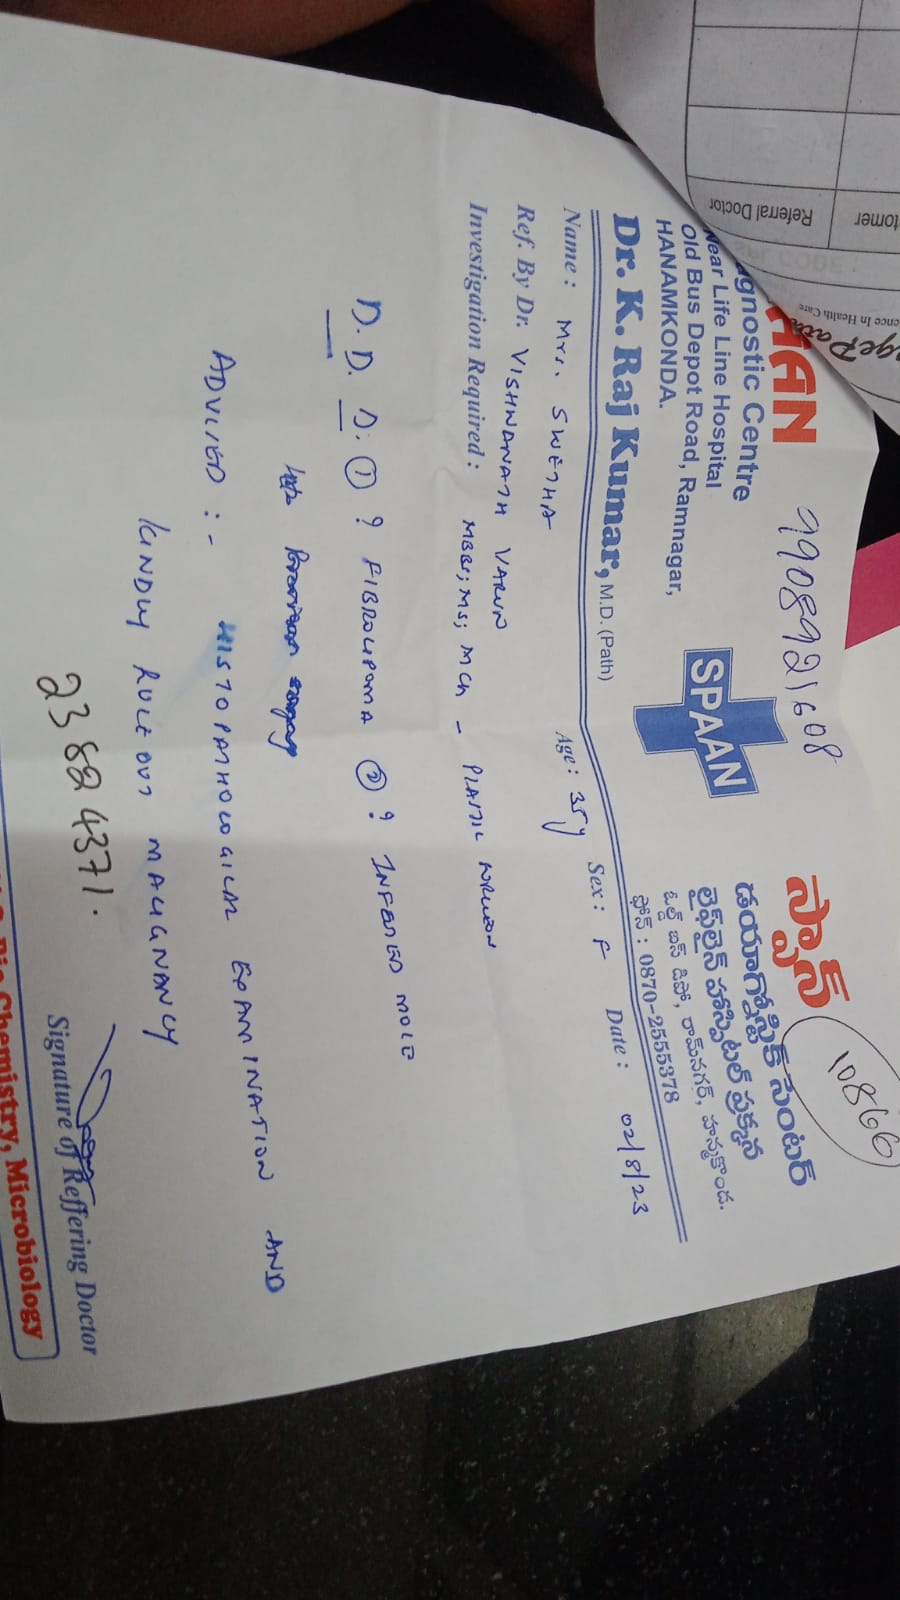 9908921608
10866
AN
స్పాన్
gnostic Centre
Near Life Line Hospital
Old Bus Depot Road, Ramnagar,
HANAMKONDA.
SPAAN
డయాగ్నోస్టిక్ సెంటర్
లైఫ్‌లైన్ హాస్పిటల్ ప్రక్కన
ఓల్డ్ బస్ డిపో, రామ్‌నగర్, హన్మకొండ.
ఫోన్ : 0870-2555378
Dr. K. Raj Kumar, M.D. (Path)
Name : Mrs. SWETHA Age : 35y Sex : F Date : 02/8/23
Ref. By Dr. VISHWANATH VARUN
Investigation Required : MBBS; MS; MCh -
D. D. D: ① ? FIBROLIPOMA ② ? INFECTED MOLE
ADVISED :- HISTOPATHOLOGICAL EXAMINATION AND
KINDLY RULE OUT MALIGNANCY
23824371.
Signature of Reffering Doctor
Chemistry, Microbiology
tomer
Referral Doctor
ence In Health Care